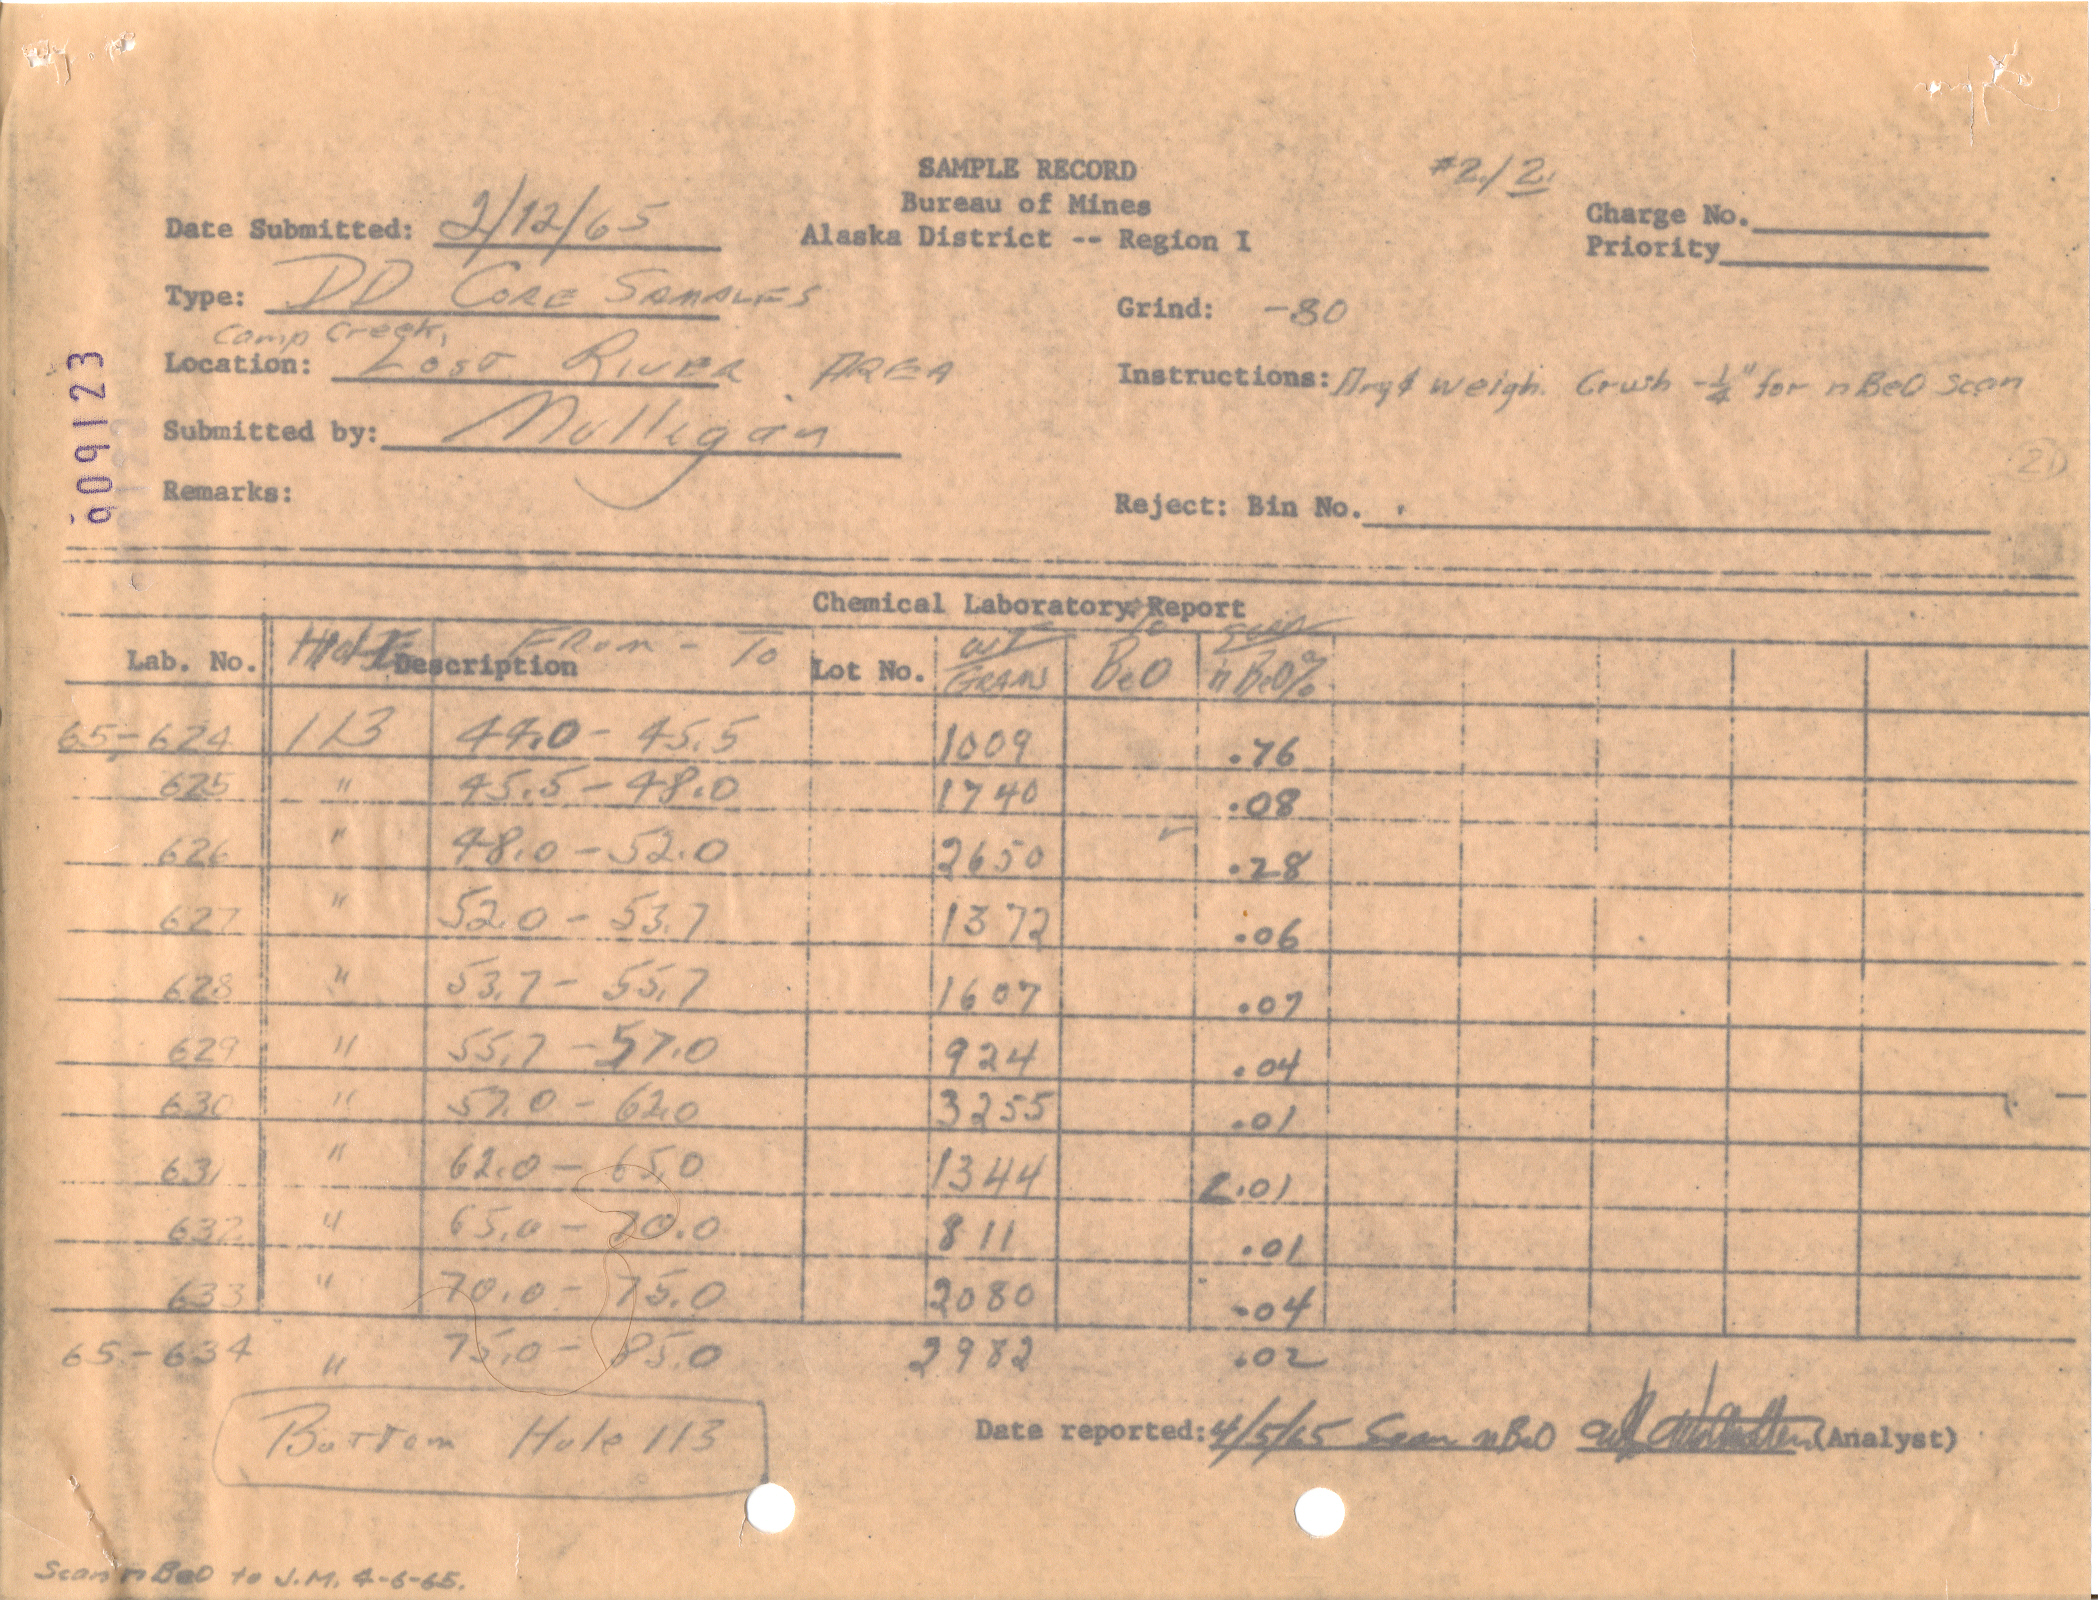 SAMPLE RECORD
#2/2
Bureau of Mines
Charge No.
Date Submitted: 2/12/65
Alaska District -- Region I
Priority
Type: DD CORE SAMPLES
Grind: -80
Camp Creek,
Location: LOST RIVER AREA
Instructions: Dry & weigh. Crush -1/4" for nBeO scan
Submitted by: Mulligan
Remarks:
Reject: Bin No.
909123
Chemical Laboratory Report
Lab. No. HOLE Description FROM - TO Lot No. WT GRAM % BeO Scan nBeO%
65-624 113 44.0 - 45.5 1009 .76
625 " 45.5 - 48.0 1740 .08
626 " 48.0 - 52.0 2650 .28
627 " 52.0 - 53.7 1372 .06
628 " 53.7 - 55.7 1607 .07
629 " 55.7 - 57.0 924 .04
630 " 57.0 - 62.0 3255 .01
631 " 62.0 - 65.0 1344 <.01
632 " 65.0 - 70.0 811 .01
633 " 70.0 - 75.0 2080 .04
65-634 " 75.0 - 85.0 2982 .02
Bottom Hole 113
Date reported: 4/5/65 Scan nBeO (Analyst)
Scan nBeO to J.M. 4-6-65.